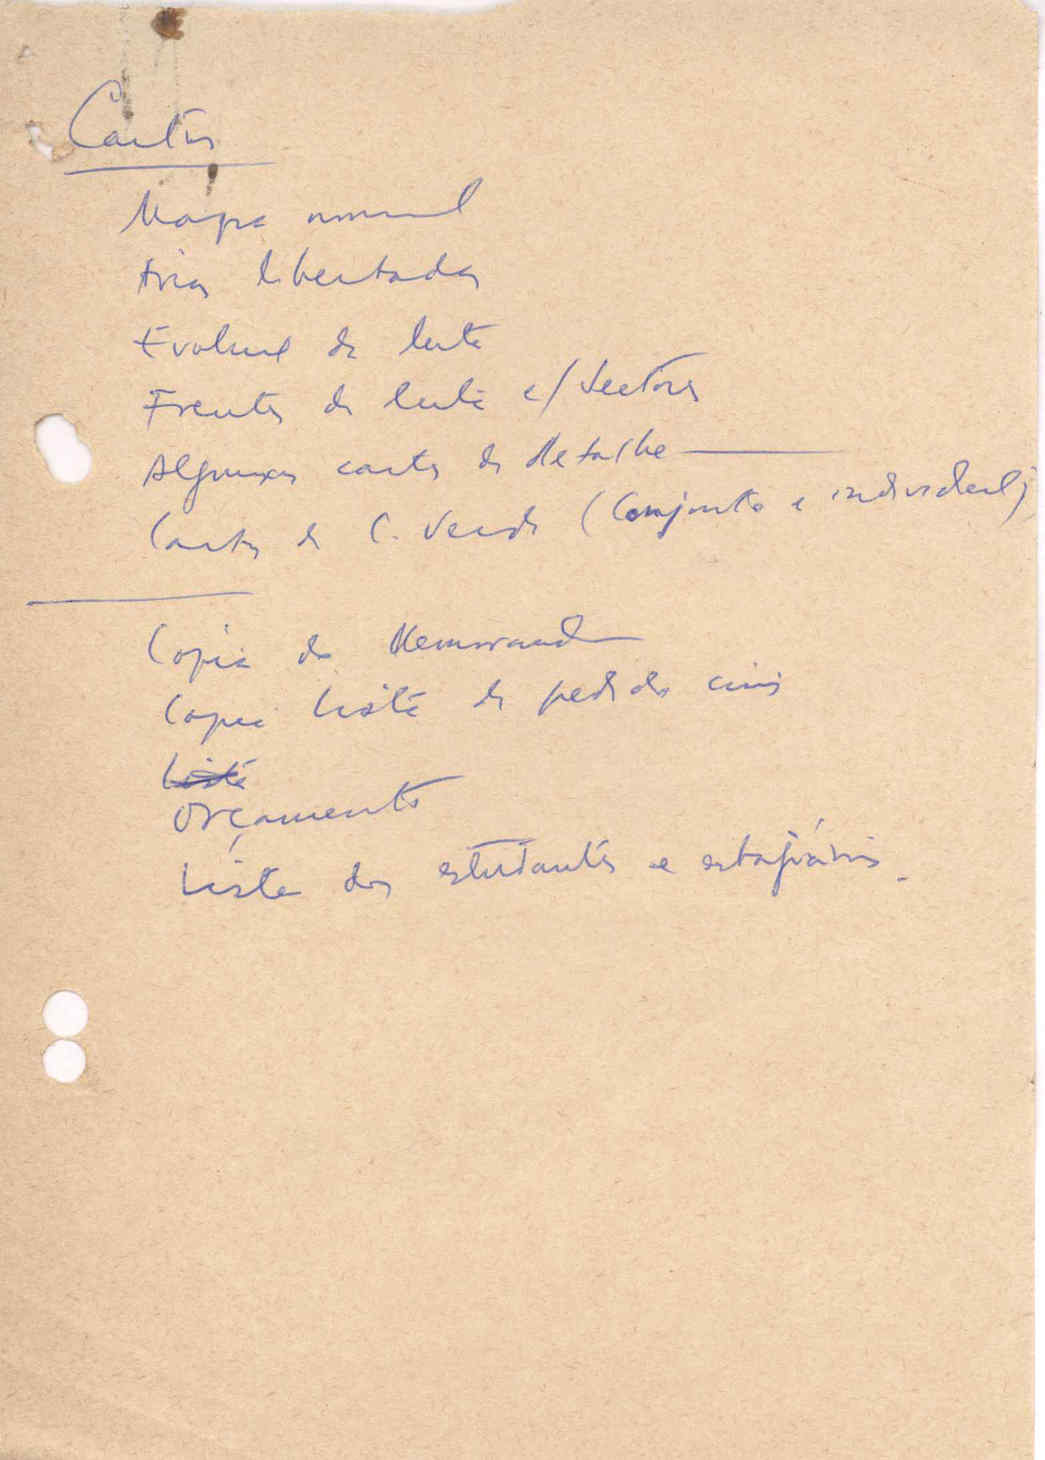 Cartas
Mapa normal
Áreas libertadas
Evolução da luta
Frentes de luta c/ sectores
Algumas cartas de detalhe
Cartas de C. Verde (Conjunto e individual)
Copia do Memorand
Copia lista de pedidos
Lista
Orçamento
Lista dos estudantes e estagiários.